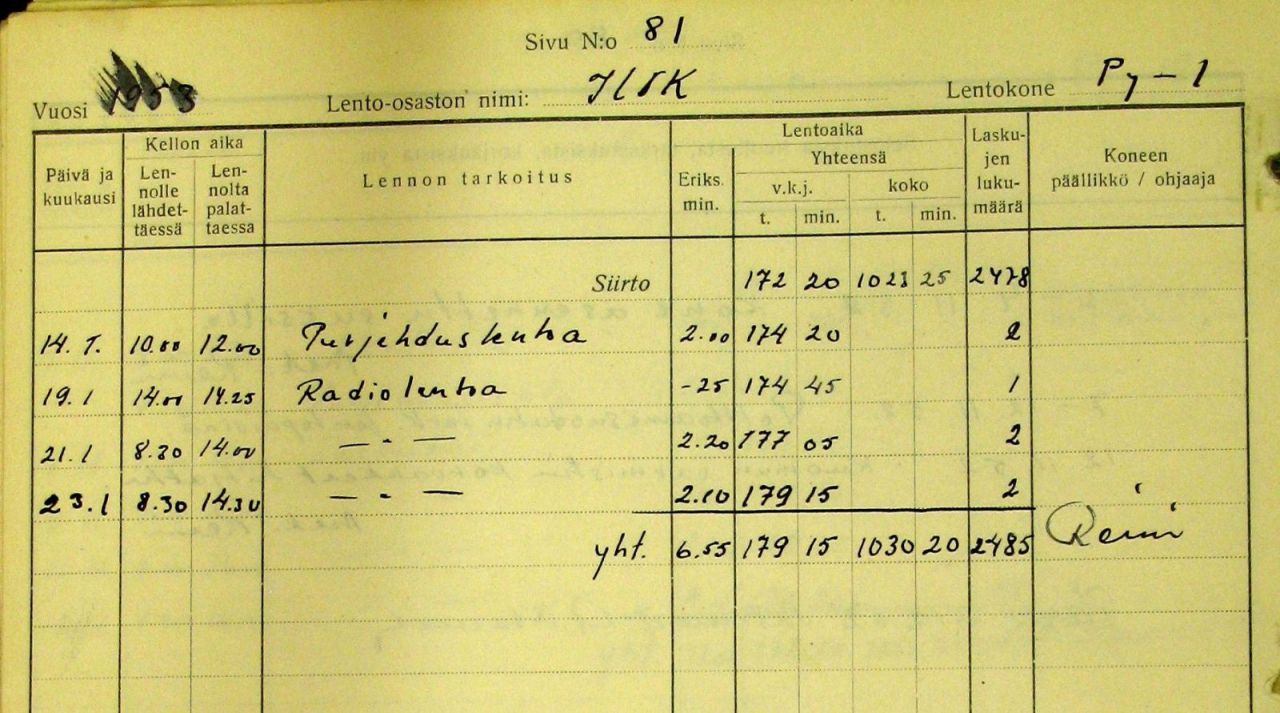 Sivu N:o 81
Vuosi 1953 Lento-osaston nimi: IlSK Lentokone Py-1
Päivä ja kuukausi Kellon aika Lennolle lähdettäessä Lennolta palattaessa Lennon tarkoitus Eriks. min. Lentoaika Yhteensä v.k.j. t. min. koko t. min. Laskujen lukumäärä Koneen päällikkö / ohjaaja
Siirto 172 20 1023 25 2478
14. 1. 10.00 12.00 Purjehduslentoa 2.00 174 20 2
19.1 14.00 14.25 Radiolentoa -25 174 45 1
21.1 8.30 14.00 — " — 2.20 177 05 2
23.1 8.30 14.30 — " — 2.10 179 15 2
yht. 6.55 179 15 1030 20 2485 Reini